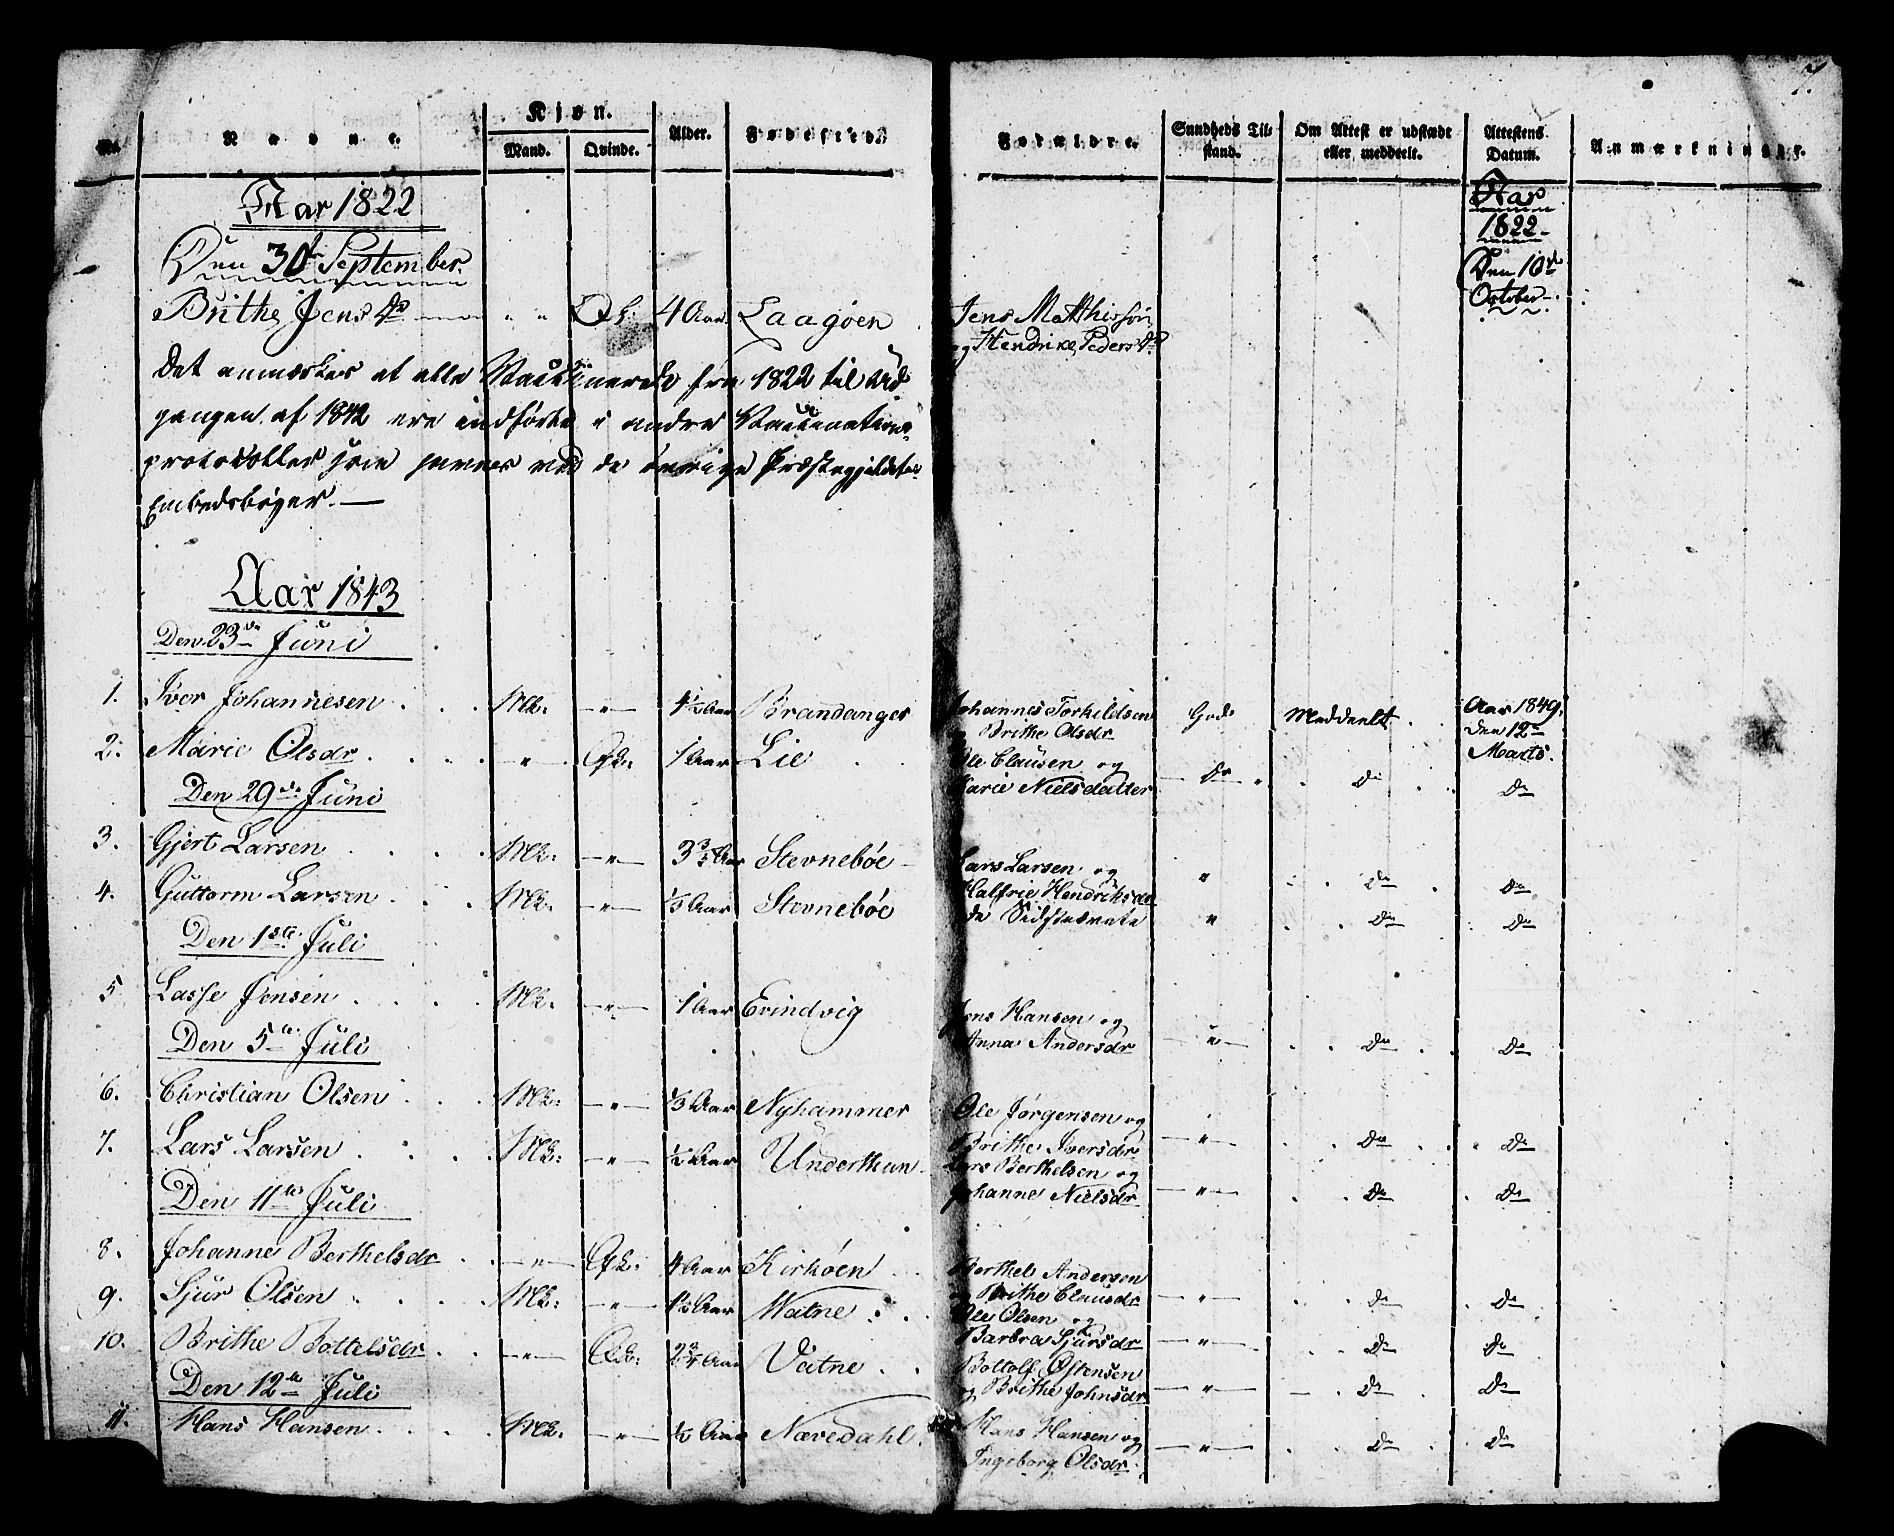 7.
No. Navne. Kjøn. Mand. Qvinde. Alder. Fødested. Forældre. Sundheds Til- stand. Om Attest er udstædt eller meddeelt. Attestens Datum. Anmærkninger.
Aar 1822
Aar 1822
Den 30te September
Den 10de October
Brithe Jens Dr " " Qk: 4 Aar Laagøen Jens Matthissøn
og Hendrike Peders Dr
Det anmærkes at alle Vaccinerede fra 1822 til Ud-
gangen af 1842 ere indførte i andre Vaccinations-
protokoller som haves ved de øvrige Præstegjeldets
Embedsbøger.
Aar 1843
Den 23de Juni
1. Iver Johannesen Mk: " Aar Brandanger Johannes Torkildsen God Meddeelt Aar 1849.
og Brithe Olsdr den 12te
2. Marie Olsdr " Qk: 1 Aar Lie Ole Clausen og Marts.
Den 29de Juni
Karie Nielsdatter Do Do Do
3. Gjert Larsen Mk: " 3 Aar Stevnebøe Lars Larsen og
Halfrie Hendriksdr " Do Do
4. Guttorm Larsen Mk: " Aar Stevnebøe de Sidstnævnte " Do Do
Den 1ste Juli
5 Lasse Jensen Mk: " 1 Aar Evindvig Jens Hansen og
Anna Andersdr " Do Do
Den 5te Juli
6. Christian Olsen Mk: " 1/3 Aar Nyhammer Ole Jørgensen og
Brithe Iversdr " Do Do
7. Lars Larsen Mk: " Aar Underthun Lars Berthelsen og
Johanne Nielsdr " Do Do
Den 11te Juli
8. Johanne Berthelsdr " Qk: 4 Aar Kirkøen Berthel Andersen
og Brithe Clausdr " Do Do
9. Sjur Olsen Mk: " Aar Watne Ole Olsen og
Barbra Sjursdr " Do Do
10. Brithe Bottelsdr " Qk: Aar Vatne Bottolf Østensen
og Brithe Johnsdr " Do Do
Den 12te Juli
11. Hans Hansen Mk: " Aar Nævedahl Hans Hansen og
Ingeborg Olsdr " Do Do